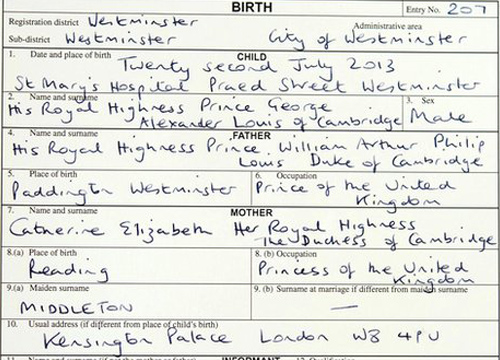 BIRTH
Entry No. 207
Registration district Westminster
Administrative area
Sub-district Westminster City of Westminster
CHILD
1. Date and place of birth
Twenty second July 2013
St Mary's Hospital Praed Street Westminster
2. Name and surname
3. Sex
His Royal Highness Prince George
Alexander Louis of Cambridge
Male
FATHER
4. Name and surname
His Royal Highness Prince William Arthur Philip
Louis Duke of Cambridge
5. Place of birth
6. Occupation
Paddington Westminster
Prince of the United
Kingdom
MOTHER
7. Name and surname
Catherine Elizabeth Her Royal Highness
The Duchess of Cambridge
8.(a) Place of birth
8. (b) Occupation
Reading
Princess of the United
Kingdom
9.(a) Maiden surname
9. (b) Surname at marriage if different from maiden surname
MIDDLETON
—
10. Usual address (if different from place of child's birth)
Kensington Palace London W8 4PU
INFORMANT